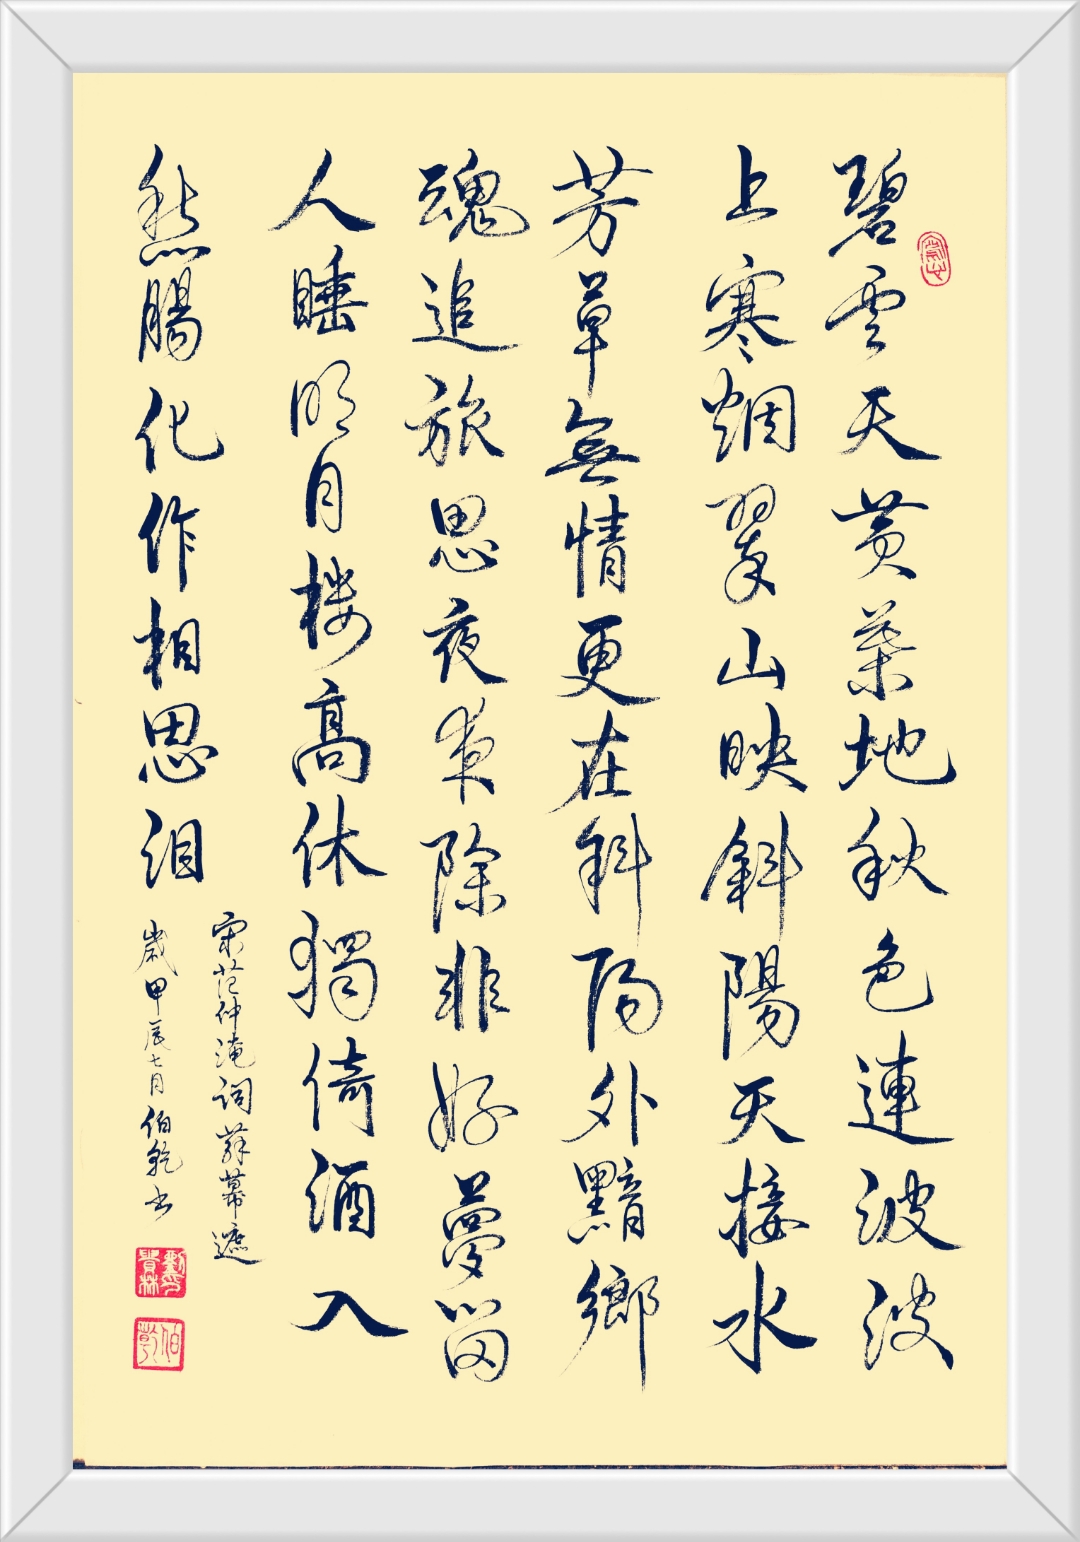 碧雲天黄葉地秋色連波波
上寒烟翠山映斜陽天接水
芳草無情更在斜阳外黯鄉
魂追旅思夜夜除非好夢留
人睡明月楼高休獨倚酒入
愁腸化作相思泪
宋范仲淹词蘇幕遮
歲甲辰七月伯乾书
伯乾